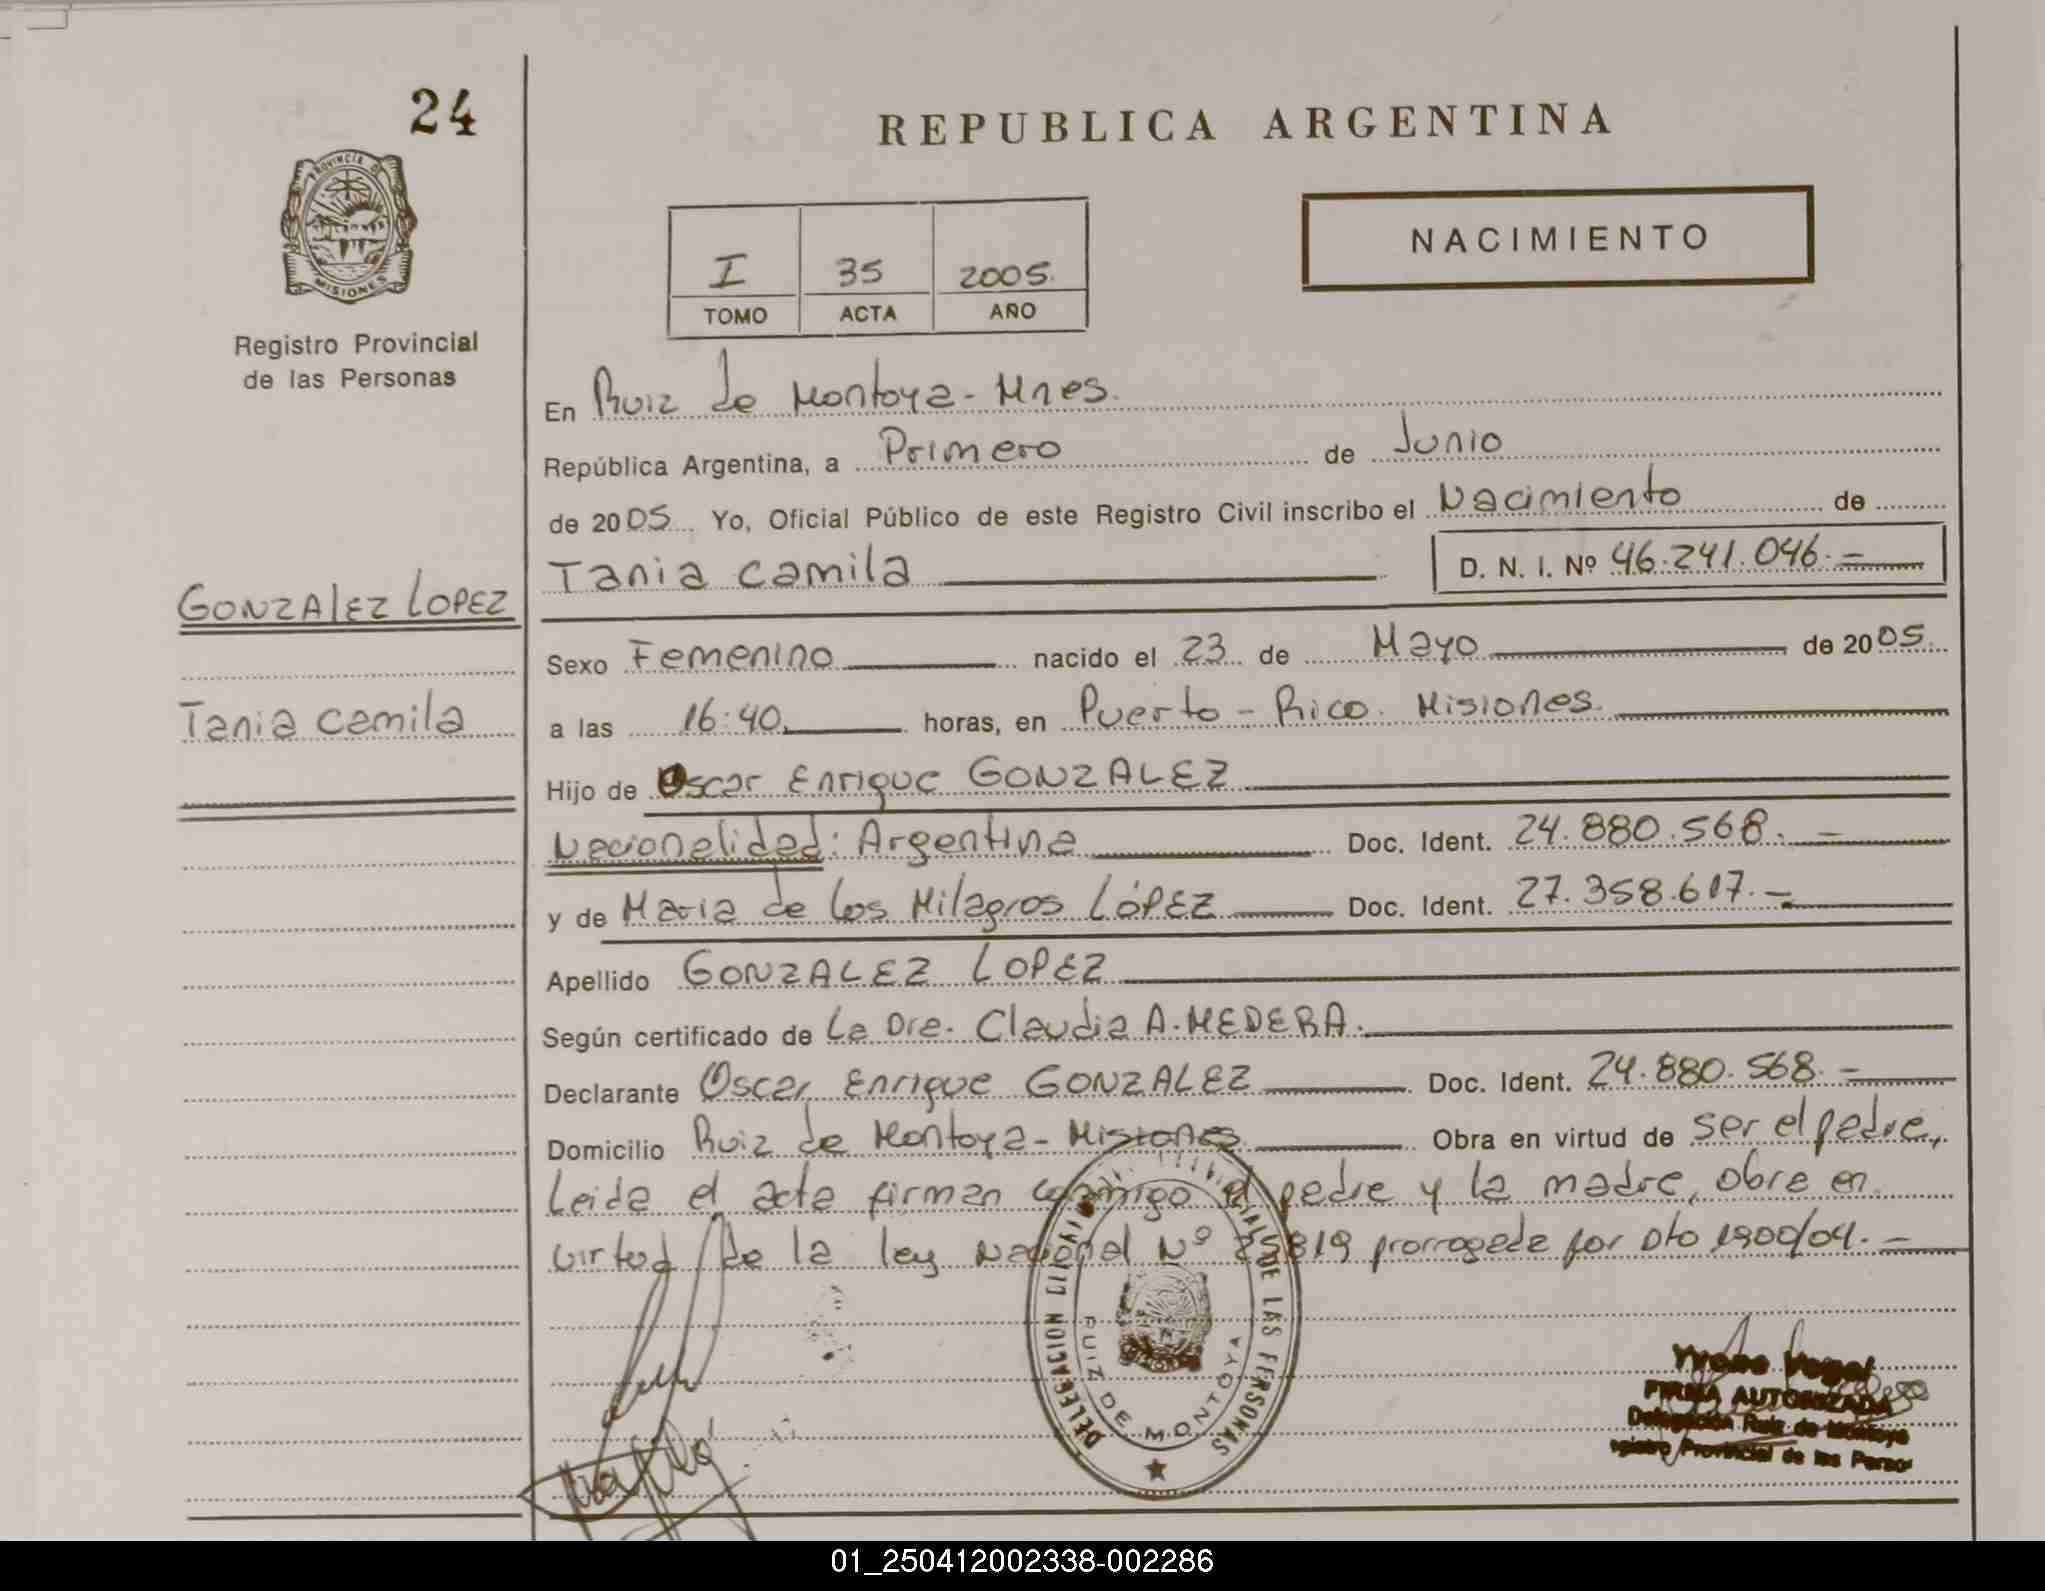 24
REPUBLICA ARGENTINA
PROVINCIA DE
MISIONES
Registro Provincial
de las Personas
I 35 2005.
TOMO ACTA AÑO
NACIMIENTO
En Ruiz de Montoya - Mnes.
República Argentina, a Primero de Junio
de 2005 Yo, Oficial Público de este Registro Civil inscribo el Nacimiento de
Tania Camila D. N. I. Nº 46.241.046.-
GONZALEZ LOPEZ
Tania Camila
Sexo Femenino nacido el 23 de Mayo de 2005.
a las 16:40. horas, en Puerto - Rico. Misiones.
Hijo de Oscar Enrique GONZALEZ
Nacionalidad: Argentina Doc. Ident. 24.880.568.-
y de Maria de los Milagros LÓPEZ Doc. Ident. 27.358.617.-
Apellido GONZALEZ LOPEZ
Según certificado de La Dra. Claudia A. MEDERA.
Declarante Oscar Enrique GONZALEZ Doc. Ident. 24.880.568.-
Domicilio Ruiz de Montoya - Misiones Obra en virtud de ser el padre,
Leida el acta firman conmigo el padre y la madre, obra en
virtud de la ley Nacional Nº 819 prorrogada por Dto 1900/04.-
DELEGACION DE LAS PERSONAS
RUIZ DE MONTOYA
FIRMA AUTORIZADA
Delegación Ruiz de Montoya
Provincial de las Perso
01_250412002338-002286